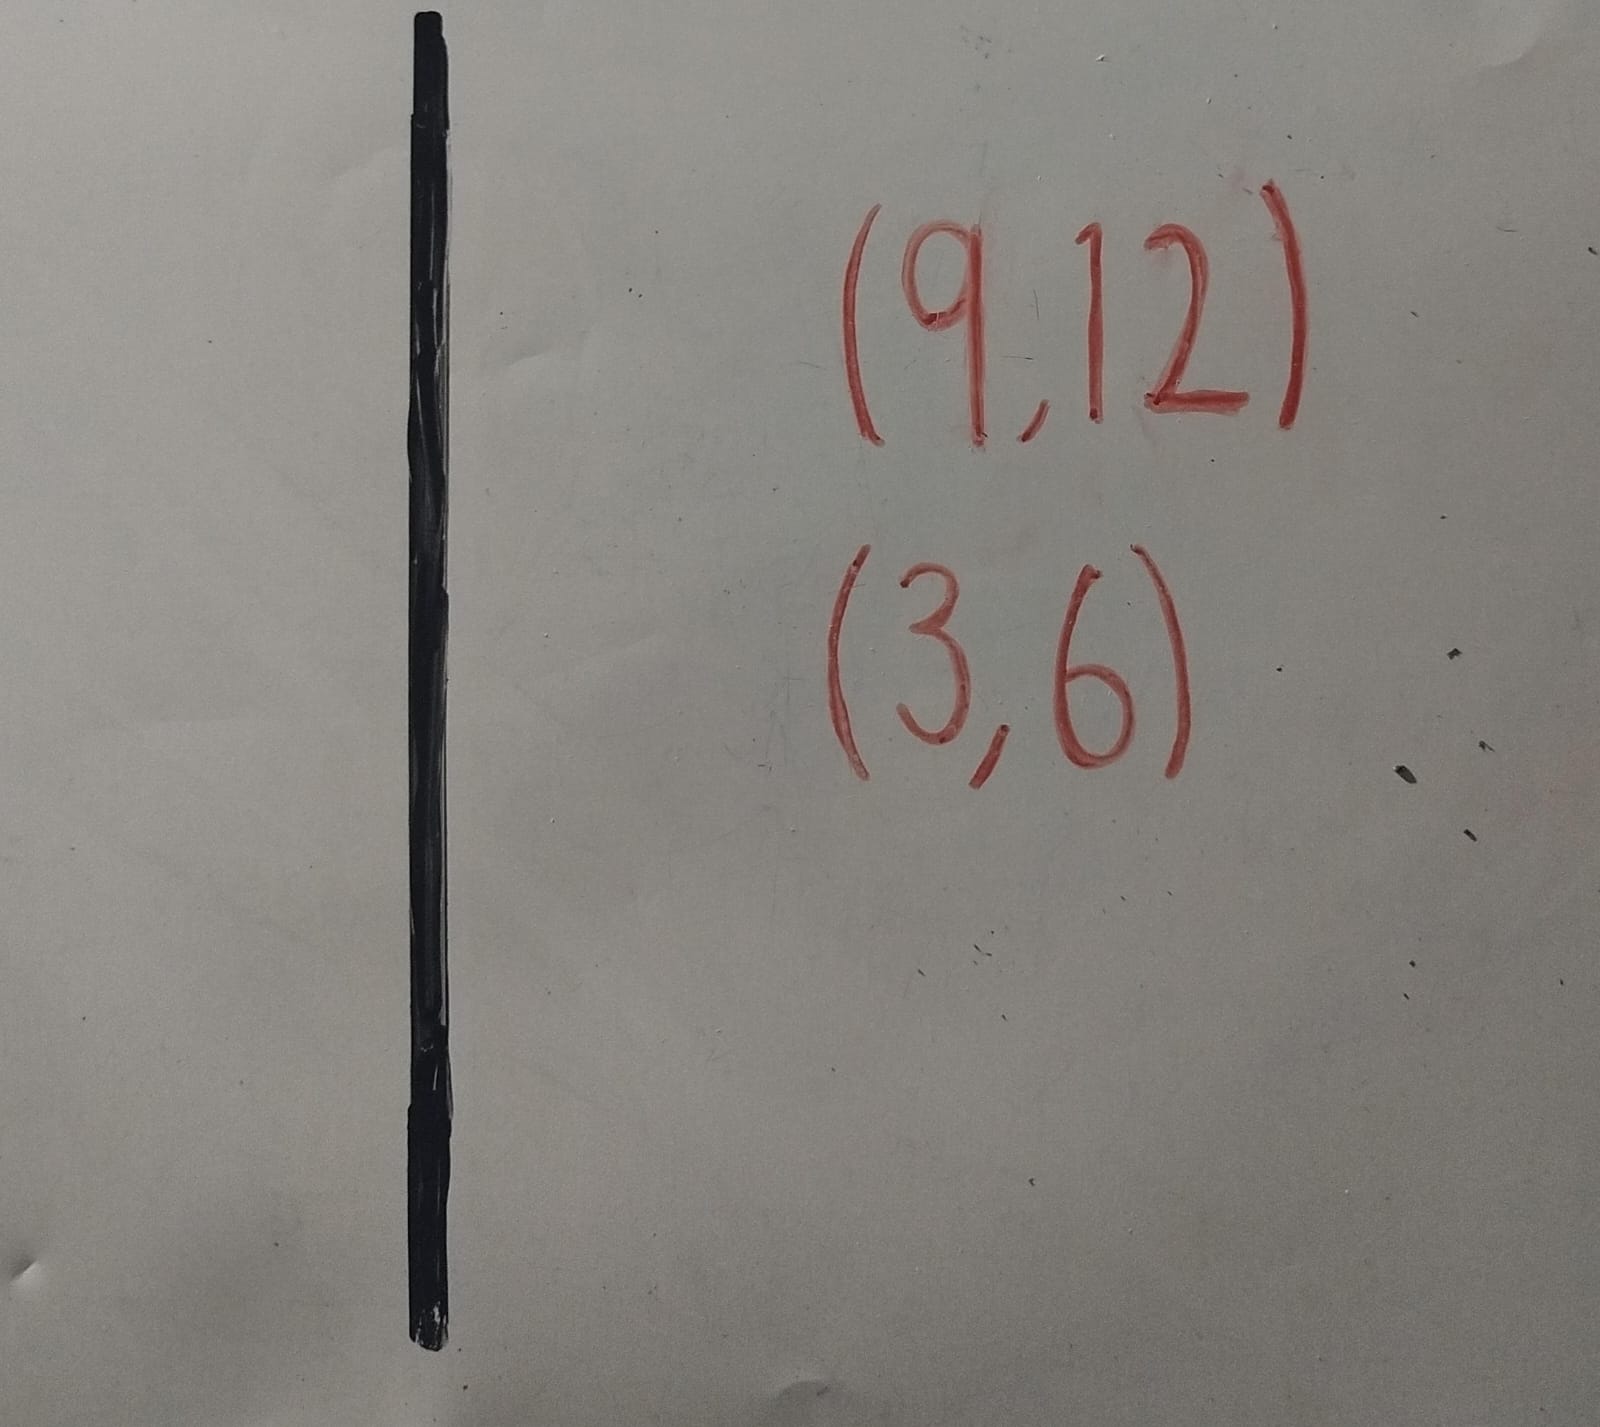 (9,12)
(3,6)